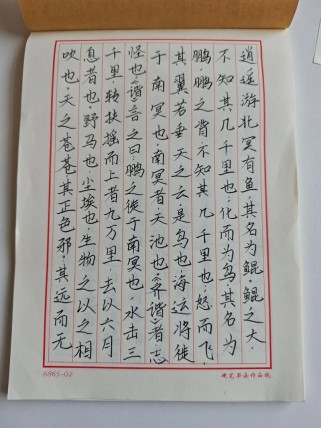 逍遥游北冥有鱼·其名为鲲·鲲之大·
不知其几千里也·化而为鸟·其名为
鹏·鹏之背不知其几千里也·怒而飞·
其翼若垂天之云是鸟也海运将徙
于南冥也·南冥者天池也·齐谐者志
怪也·谐言之曰·鹏之徙于南冥也·水击三
千里·转扶摇而上者九万里·去以六月
息者也·野马也·尘埃也·生物之以之相
吹也·天之苍苍其正色邪·其远而无
6865-02